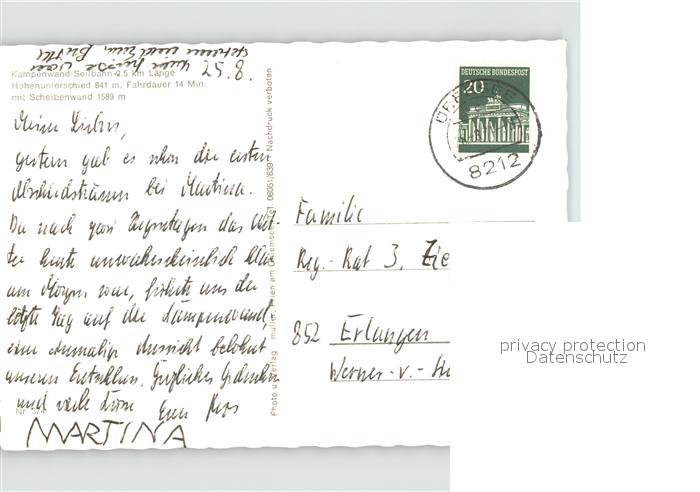 8.52
Kampenwand-Seilbahn 2,5 km Länge
Höhenunterschied 841 m, Fahrdauer 14 Min.
mit Scheibenwand 1589 m
Meine Lieben,
gestern gab es schon die ersten
Abschiedstränen bei Martina.
Da nach zwei Regentagen das Wet-
ter heute unwahrscheinlich klar
am Morgen war, führte uns der
letzte Tag auf die Kampenwand,
eine einmalige Aussicht belohnt
unseren Entschluss. Herzliches Gedenken
und viele Eure
MARTINA
Nachdruck verboten
Photo u. Verlag
DEUTSCHE BUNDESPOST
20
8212
Familie
Reg.-Rat 3. Zie
852 Erlangen
Werner-v.-
privacy protection
Datenschutz